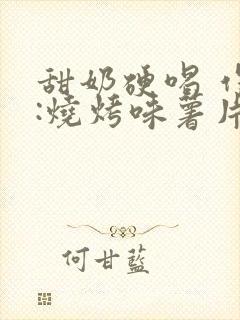 甜奶硬唱
:燒烤味薯片
何甘藍